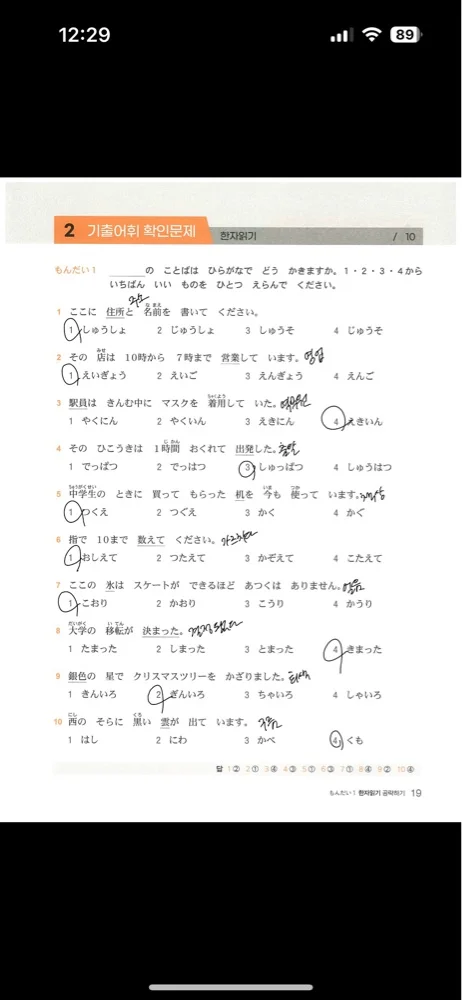 12:29
89
2 기출어휘 확인문제 한자읽기 / 10
もんだい1 ______の ことばは ひらがなで どう かきますか。1・2・3・4から
いちばん いい ものを ひとつ えらんで ください。
주소
な まえ
1 ここに 住所と 名前を 書いて ください。
1 しゅうしょ 2 じゅうしょ 3 しゅうそ 4 じゅうそ
みせ
2 その 店は 10時から 7時まで 営業して います。 영업
1 えいぎょう 2 えいご 3 えんぎょう 4 えんご
ちゃくよう
3 駅員は きんむ中に マスクを 着用して いた。
1 やくにん 2 やくいん 3 えきにん 4 えきいん
じ かん
4 その ひこうきは 1時間 おくれて 出発した。 출발
1 でっぱつ 2 でっはつ 3 しゅっぱつ 4 しゅうはつ
ちゅうがくせい いま つか
5 中学生の ときに 買って もらった 机を 今も 使って います。
1 つくえ 2 つぐえ 3 かく 4 かぐ
6 指で 10まで 数えて ください。
1 おしえて 2 つたえて 3 かぞえて 4 こたえて
7 ここの 氷は スケートが できるほど あつくは ありません。 얼음
1 こおり 2 かおり 3 こうり 4 かうり
だいがく い てん
8 大学の 移転が 決まった。
1 たまった 2 しまった 3 とまった 4 きまった
9 銀色の 星で クリスマスツリーを かざりました。
1 きんいろ 2 ぎんいろ 3 ちゃいろ 4 しゃいろ
にし くろ
10 西の そらに 黒い 雲が 出て います。 구름
1 はし 2 にわ 3 かべ 4 くも
답 1② 2① 3④ 4③ 5① 6③ 7① 8④ 9② 10④
もんだい1 한자읽기 공략하기 19